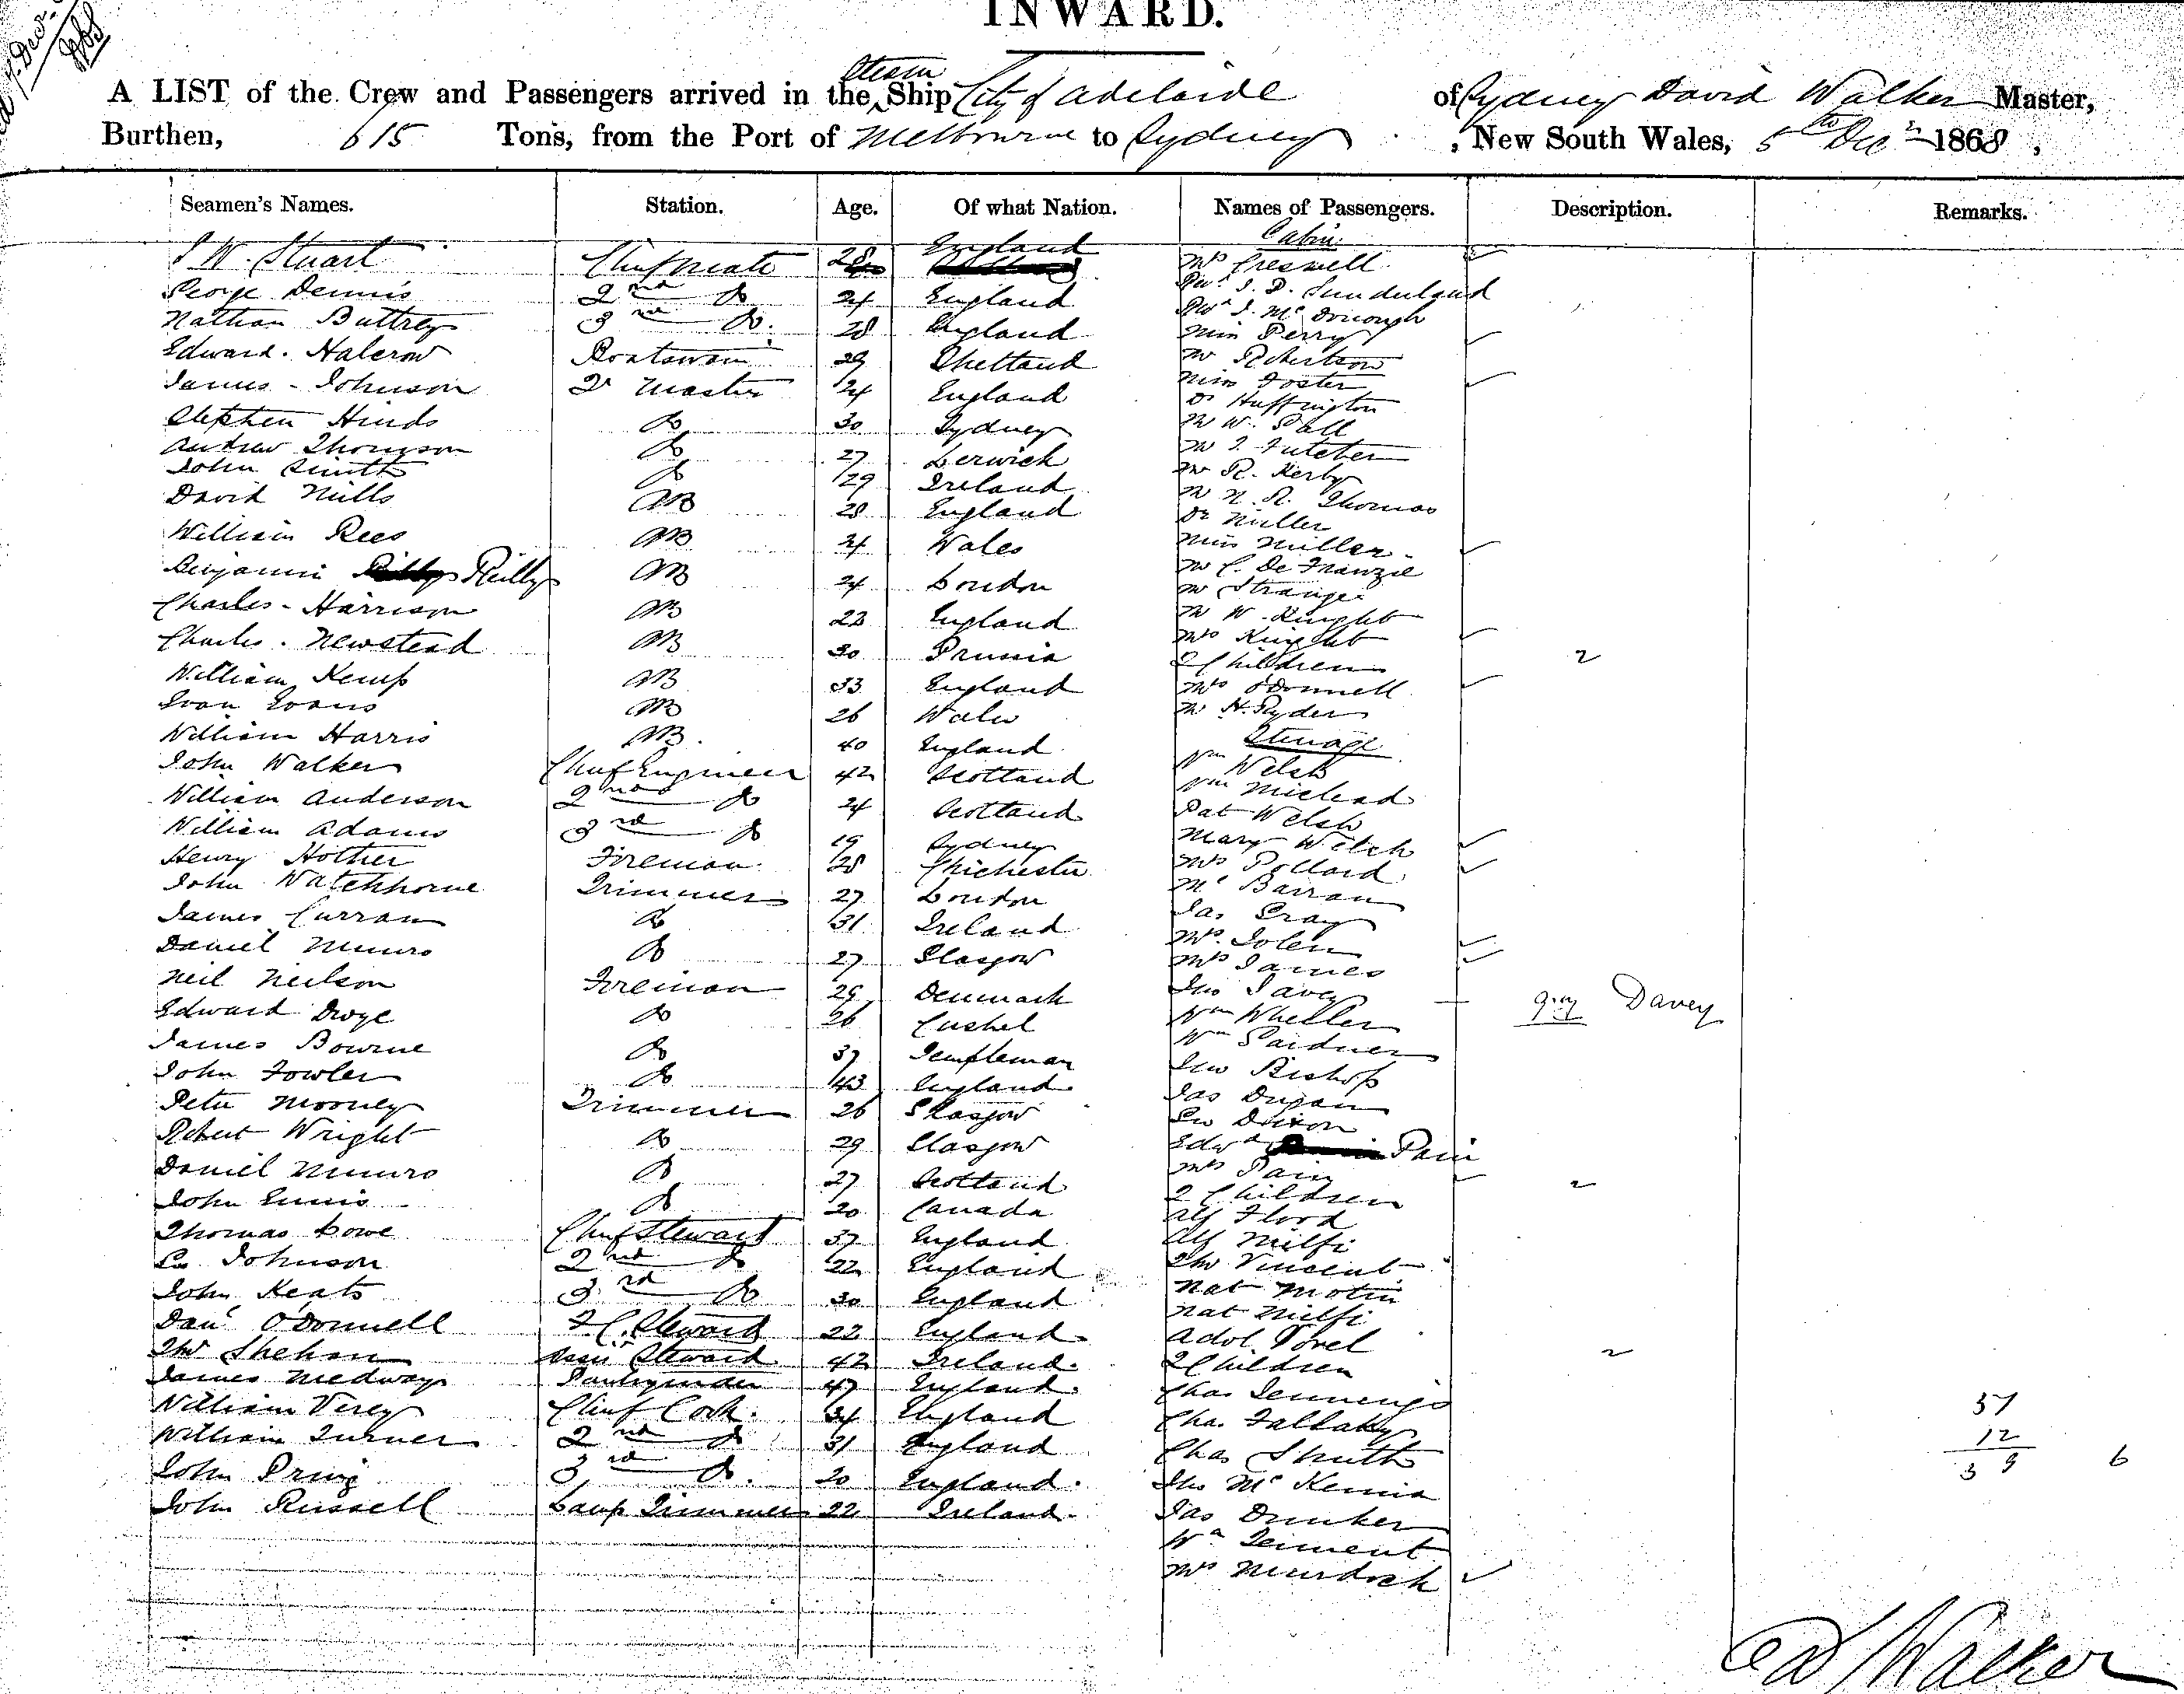 INWARD.
A LIST of the Crew and Passengers arrived in the Steam Ship City of Adelaide of Sydney David Walker Master,
Burthen, 615 Tons, from the Port of Melbourne to Sydney, New South Wales, 5th Decr 1868,
Seamen's Names. Station. Age. Of what Nation. Names of Passengers. Description. Remarks.
Cabin
J W. Stuart Chief Mate 28 England Mrs Creswell
George Dennis 2nd Do 24 England Revd J. D. Sunderland
Nathan Buttrey 3rd Do. 28 England Revd J. Mc
Edward Halcrow Boatswain 29 Shetland Miss Perry
James Johnson Qr Master 24 England Mr Robertson
Miss Foster
Stephen Hinds Do 30 Sydney Dr Huffington
Andrew Thomson Do 27 Lerwick Mr W.
John Smith Do 29 Ireland Mr R. Kerby
David Mills AB 28 England Mr N. R. Thomas
Dr Miller
William Rees AB 24 Wales Miss Miller
Benjamin Reilly AB 24 London Mr C. De
Mr Strange
Charles Harrison AB 22 England Mr W. Knight
Charles Newstead AB 30 Prussia Mrs Knight
2 Children 2
William Kemp AB 33 England Mrs O'Donnell
Evan Evans AB 26 Wales Mr H. Ryder
William Harris AB. 40 England Steerage
John Walker Chief Engineer 42 Scotland Wm Welsh
William Anderson 2nd Do 24 Scotland Wm
Pat Welsh
William Adams 3rd Do 19 Sydney Mary Welch
Henry Hother Fireman 28 Chichester Mrs Pollard
John Watchhorne Trimmer 27 London Mc Barran
James Curran Do 31 Ireland Jas Gray
Daniel Munro Do 27 Glasgow Mrs
Mrs James
Neil Neilson Fireman 29 Denmark Jno Davey Davey
Edward Dwye Do 26 Cashel Wm Wheller
James Bourne Do 37 Templeman Wm Gardner
John Fowler Do 43 England Jno Bishop
Peter Mooney Trimmer 26 Glasgow Jas Dugan
Geo Dixon
Robert Wright Do 29 Glasgow Edwd Pain
Daniel Munro Do 27 Scotland Mrs Pain
John Ennis Do 20 Canada 2 Children 2
Thomas Lowe Chief Steward 37 England Alf Flood
Geo Johnson 2nd Do 22 England Alf Milfi
Tho Vincent
John Keats 3rd Do 30 England Nat
Danl O'Donnell F.C. Steward 22 England Nat Milfi
Tho Shehan Steward 42 Ireland Adol
James Medway 47 England 2 Children 2
William Verey Chief Cook. 34 England Chas Jennengs
William Turner 2nd Do 31 England Chas
Chas
John Pring 3rd Do. 20 England Jno McKennia
John Russell Lamp Trimmer 22 Ireland Jas
Wm
Mrs Murdoch
51
12
39 6
D Walker